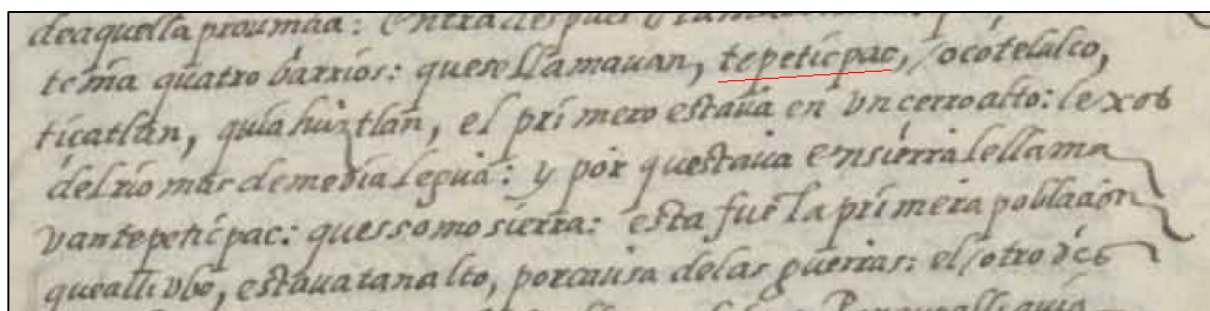 de aquella prouinçia: Entra despues
tenia quatro barrios: que se llamauan, tepeticpac, ocótelulco,
ticatlan, quiahuiztlan, el primero estaua en vn cerro alto: lexos
del rio mas de media legua: y por questaua en sierra le llama
van tepeticpac: ques somo sierra: esta fue la primera poblaçion
que alli vbo, estaua tan alto, por causa de las guerras: el otro